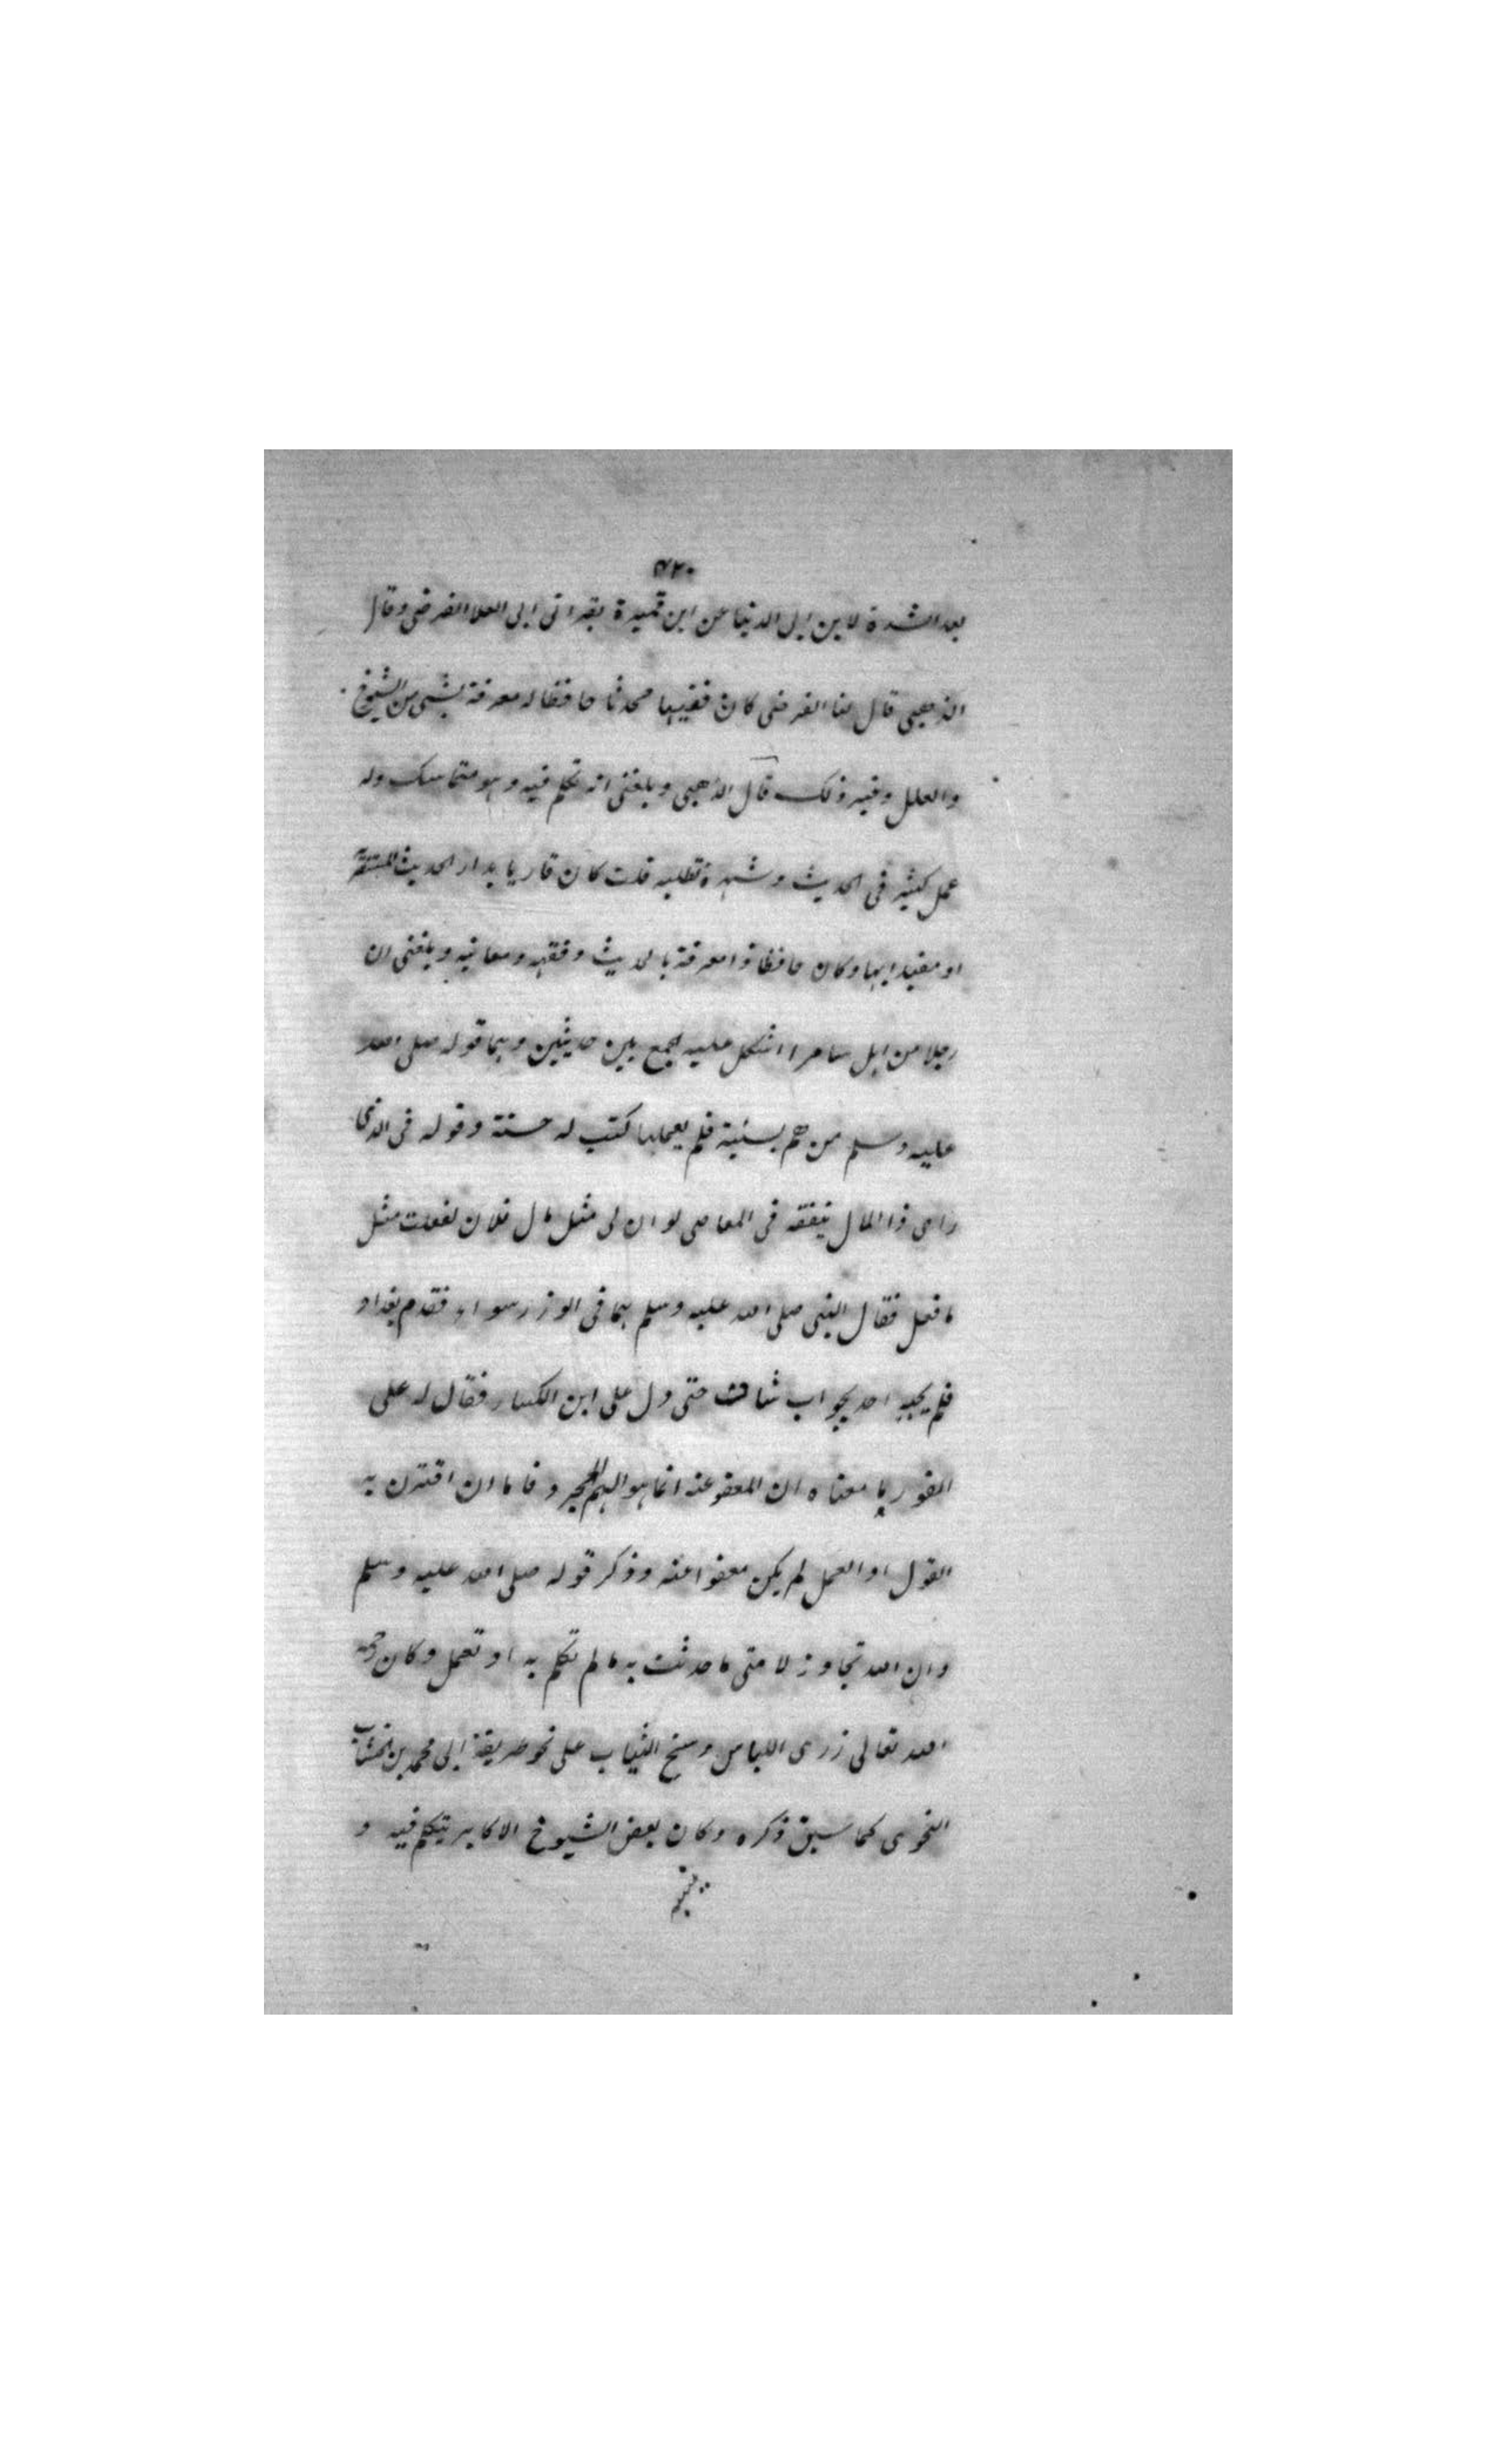 ٧٢٠
بعد الشدة لابن ابى الدنيا عن ابن قميرة بقراتى ابى العلا الفرضى وقال
الذهبى قال لنا الفرضى كان فقيها محدثا حافظا له معرفة بشى من الشيوخ
والعلل وغير ذلك قال الذهبى وبلغنى انه تكلم فيه وهو متماسك وله
عمل كثير فى الحديث وشهرة تطلبه قلت كان قاريا بدار الحديث المستنصرية
او مفيدا بها وكان حافظا ذا معرفة بالحديث وفقهه ومعانيه وبلغنى ان
رجلا من اهل سامرا اشكل عليه الجمع بين حديثين وهما قوله صلى الله
عليه وسلم من هم بسئية فلم يعملها كتب له حسنة وقوله فى الذى
راى ذا المال ينفقه فى المعاصى لو ان لى مثل مال فلان لفعلت مثل
ما فعل فقال النبى صلى الله عليه وسلم هما فى الوزر سواء فقدم بغداد
فلم يجبه احد بجواب شاف حتى دل على ابن الكسار فقال له على
الفور ما معناه ان المعفو عنه انما هو الهم المجرد فاما ان اقترن به
القول او العمل لم يكن معفوا عنه وذكر قوله صلى الله عليه وسلم
وان الله تجاوز لامتى ما حدثت به ما لم تكلم به او تعمل وكان رحمه
الله تعالى زرى اللباس وسخ الثياب على نحو طريقة ابى محمد بن الخشاب
النحوى كما سبق ذكره وكان بعض الشيوخ الاكابر يتكلم فيه و